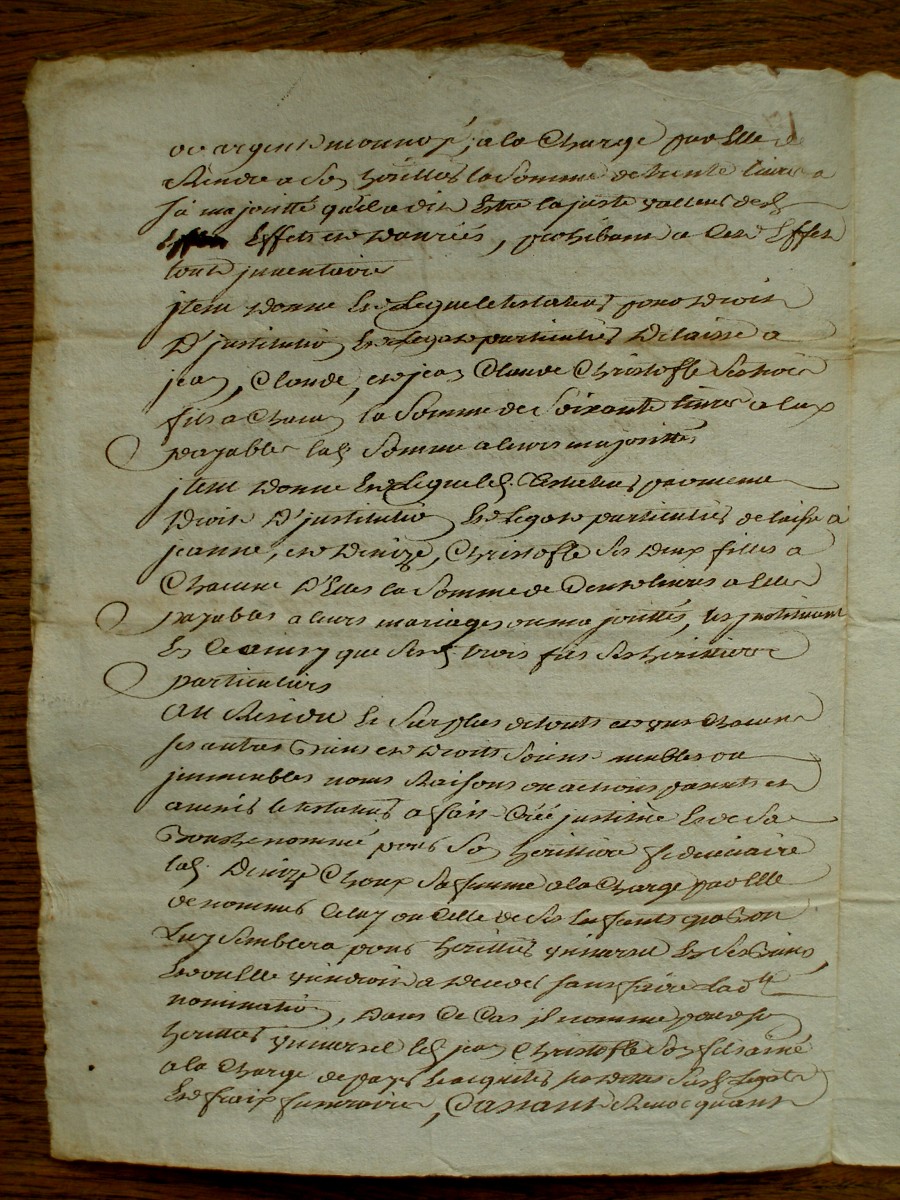 et argent monnoyé, a la Charge par Elle de
Rendre a son héritier la Somme de trente livres a
sa majoritté qu'il a dit Estre la juste valleur desd
Effets et danrées, prohibant a Cet Effet
tout jnventaire
jtem donne Et Legue le testateur par droit
D'jnstitution Et Legat particulier Delaisse a
jean, Claude, et jean Claude Christofle ses trois
fils a Chacun la Somme de Soixante livres a Eux
payables lad Somme a leurs majorittés
jtem donne Et Legue led. testateur par meme
Droit D'jnstitution Et Legat particulier delaisse a
jeanne, et Denize, Christofle ses deux filles a
Chacune D'Elles la Somme de Cent livres a Elles
payables a leurs mariages ou majorittés, les jnstituant
En Ce ainsy que sesd trois fils ses heritiers
particuliers
Au Residu Et Surplus de touts et uns Chacuns
ses autres Biens et Droits Soient meubles ou
jmmeubles noms Raisons ou actions presents et
avenir le testateur a fait Créé jnstitué Et de Sa
Bouche nommé pour Son heritiere fiduciaire
lad. Denize Choux Sa femme a la Charge par Elle
de nommer Celuy ou Celle de Ses Enfants que Bon
Luy Semblera pour heritier universel En Ses Biens
Et ou Elle viendroit a deceder Sans faire lad.te
nomination, Dans Ce Cas jl nomme pour son
heritier universel led jean Christofle Son fils ainé
a la Charge de payer Et acquiter ses dettes Susd Legats
Et fraix funeraires, Cassant Revocquant